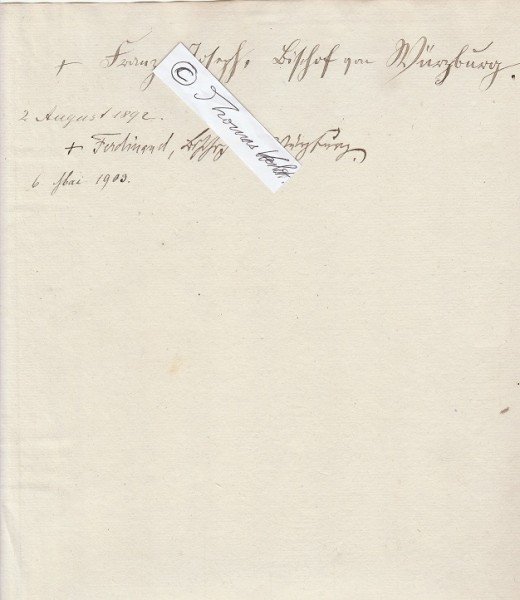 + Franz Joseph, Bischof von Würzburg.
2 August 1892.
+ Ferdinand, Bischof Würzburg.
6 Mai 1903.
© Thomas